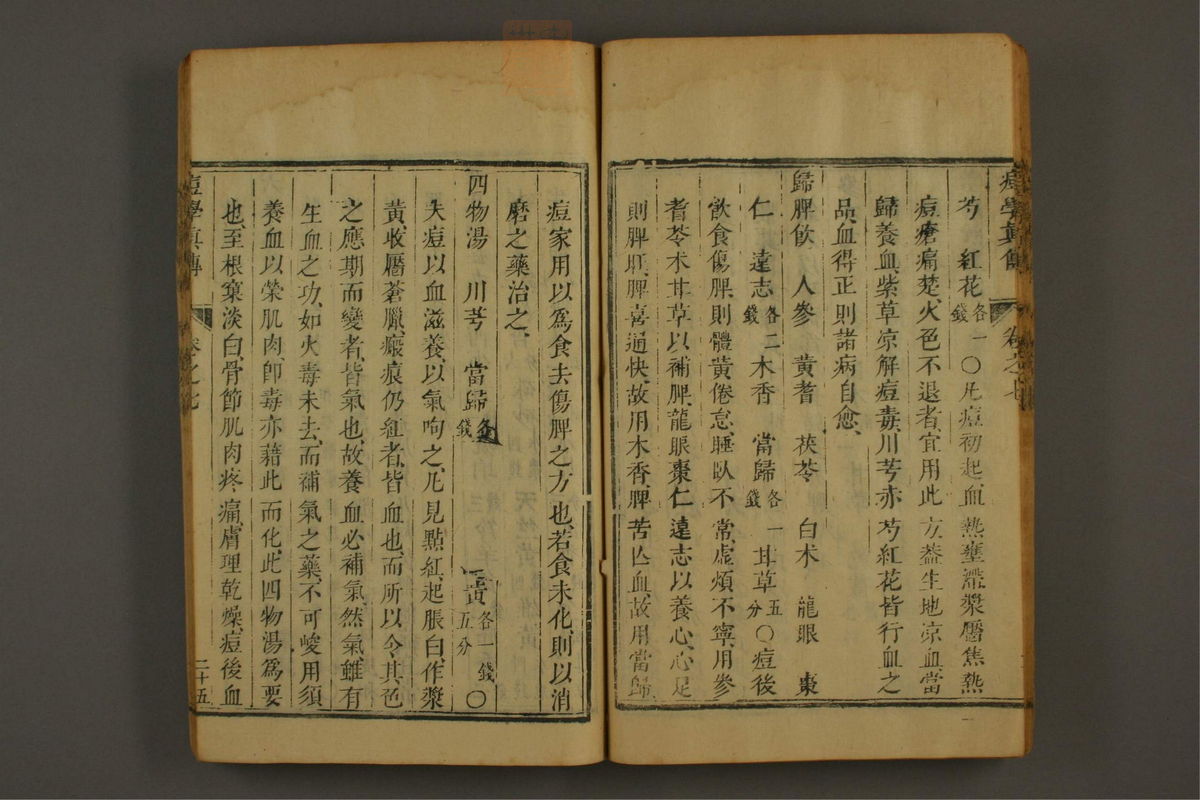 痘學真傳
卷之七
芍　紅花各一錢〇凡痘初起血熱壅滯漿靨焦熱
痘瘡痛楚火色不退者宜用此方益生地凉血當
歸養血紫草凉解痘毒川芎赤芍紅花皆行血之
品血得正則諸病自愈
歸脾飲　人參　黄耆　茯苓　白朮　龍眼　棗
仁　遠志各二錢木香　當歸各一錢甘草五分〇痘後
飲食傷脾則體黄倦怠睡臥不常虛煩不寧用參
耆苓朮甘草以補脾龍眼棗仁遠志以養心心足
則脾旺脾喜通快故用木香脾苦亾血故用當歸
痘家用以爲食去傷脾之方也若食未化則以消
磨之藥治之
四物湯　川芎　當歸各錢　黄各一錢五分〇
夫痘以血滋養以氣呴之凡見點紅起脹白作漿
黄收靨蒼臘瘢痕仍紅者皆血也而所以令其色
之應期而變者皆氣也故養血必補氣然氣雖有
生血之功如火毒未去而補氣之藥不可峻用須
養血以榮肌肉卽毒亦藉此而化此四物湯爲要
也至根窠淡白骨節肌肉疼痛膚理乾燥痘後血
痘學真傳
卷之七
二十五